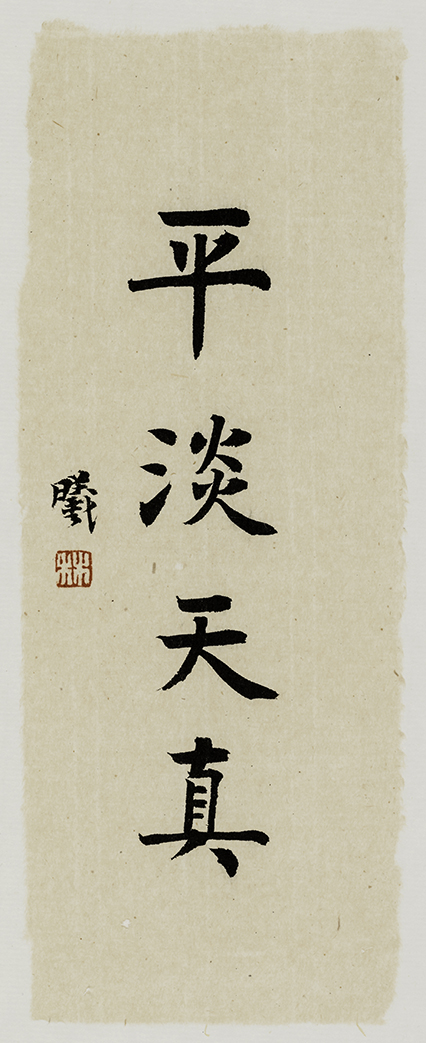 平淡天真
曦